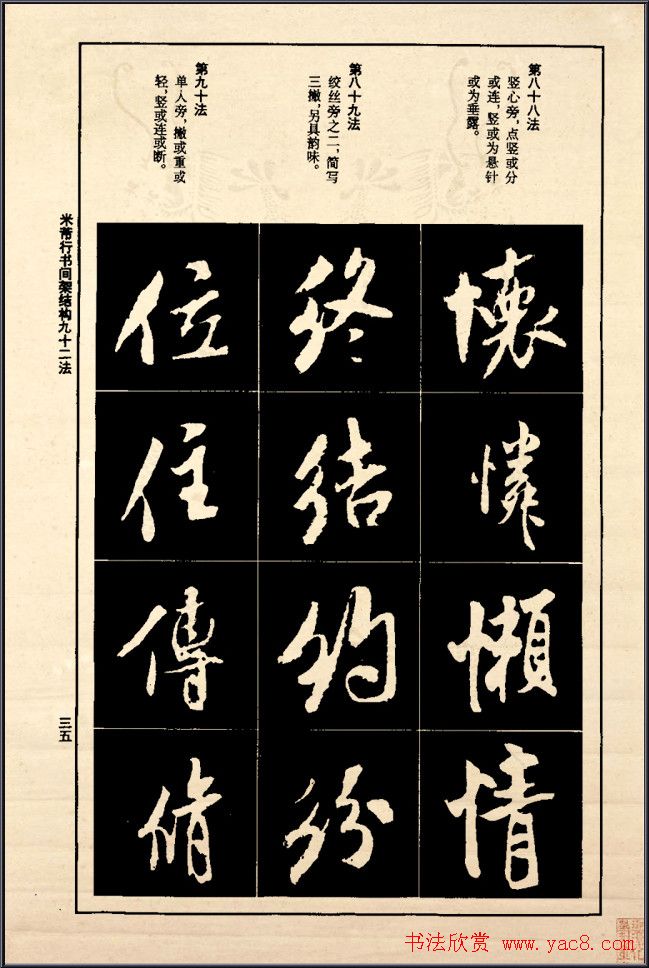 第八十八法
竖心旁，点竖或分
或连，竖或为悬针
或为垂露。
第八十九法
绞丝旁之二，简写
三撇，另具韵味。
第九十法
单人旁，撇或重或
轻，竖或连或断。
懷
憐
懶
情
终
结
约
纷
位
住
傳
脩
米芾行书间架结构九十二法
三五
书法欣赏 www.yac8.com